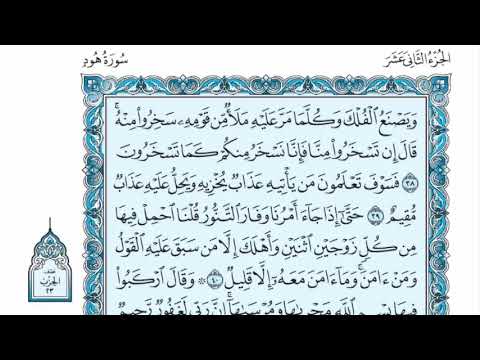 الجزء الثاني عشر
سورة هود
وَيَصْنَعُ ٱلْفُلْكَ وَكُلَّمَا مَرَّ عَلَيْهِ مَلَأٌ مِّن قَوْمِهِۦ سَخِرُوا۟ مِنْهُ ۚ
قَالَ إِن تَسْخَرُوا۟ مِنَّا فَإِنَّا نَسْخَرُ مِنكُمْ كَمَا تَسْخَرُونَ
٣٨ فَسَوْفَ تَعْلَمُونَ مَن يَأْتِيهِ عَذَابٌ يُخْزِيهِ وَيَحِلُّ عَلَيْهِ عَذَابٌ
مُّقِيمٌ ٣٩ حَتَّىٰٓ إِذَا جَآءَ أَمْرُنَا وَفَارَ ٱلتَّنُّورُ قُلْنَا ٱحْمِلْ فِيهَا
مِن كُلٍّ زَوْجَيْنِ ٱثْنَيْنِ وَأَهْلَكَ إِلَّا مَن سَبَقَ عَلَيْهِ ٱلْقَوْلُ
وَمَنْ ءَامَنَ ۚ وَمَآ ءَامَنَ مَعَهُۥٓ إِلَّا قَلِيلٌ ٤٠ ۞ وَقَالَ ٱرْكَبُوا۟
فِيهَا بِسْمِ ٱللَّهِ مَجْر۪ىٰهَا وَمُرْسَىٰهَآ ۚ إِنَّ رَبِّى لَغَفُورٌ رَّحِيمٌ
نصف
الحزب
٢٣